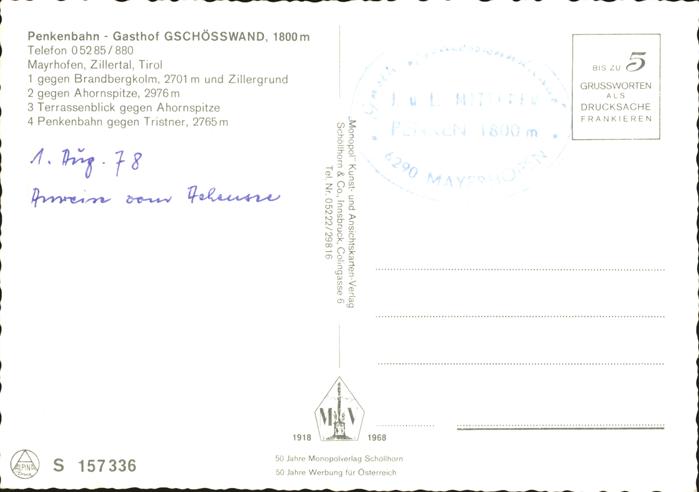 Penkenbahn - Gasthof GSCHÖSSWAND, 1800 m
Telefon 0 52 85 / 880
Mayrhofen, Zillertal, Tirol
1 gegen Brandbergkolm, 2701 m und Zillergrund
2 gegen Ahornspitze, 2976 m
3 Terrassenblick gegen Ahornspitze
4 Penkenbahn gegen Tristner, 2765 m
1. Aug. 78
vom
„Monopol" Kunst- und Ansichtskarten-Verlag
Schöllhorn & Co., Innsbruck, Colingasse 6
Tel. Nr. 0 52 22 / 29 8 16
PENKEN 1800 m
6290 MAYRHOFEN
BIS ZU 5
GRUSSWORTEN
ALS
DRUCKSACHE
FRANKIEREN
M V
1918 1968
50 Jahre Monopolverlag Schöllhorn
50 Jahre Werbung für Österreich
S 157336